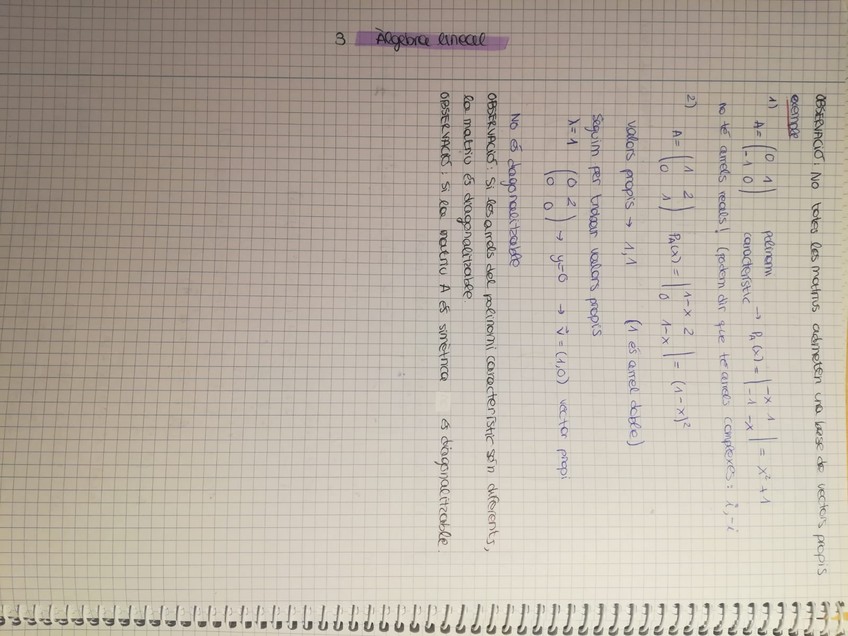 3 Àlgebra lineal
OBSERVACIÓ: No totes les matrius admeten una base de vectors propis
exemple
1) A = (0 1 / -1 0) polinomi característic → P_A(x) = |-x 1 / -1 -x| = x² + 1
no té arrels reals! (podem dir que té arrels complexes: i, -i
2) A = (1 2 / 0 1) P_A(x) = |1-x 2 / 0 1-x| = (1-x)²
valors propis → 1,1 (1 és arrel doble)
Seguim per trobar valors propis
λ=1 (0 2 / 0 0) → y=0 → v⃗ = (1,0) vector propi
No és diagonalitzable
OBSERVACIÓ: Si les arrels del polinomi característic són diferents,
la matriu és diagonalitzable
OBSERVACIÓ: Si la matriu A és simètrica és diagonalitzable.